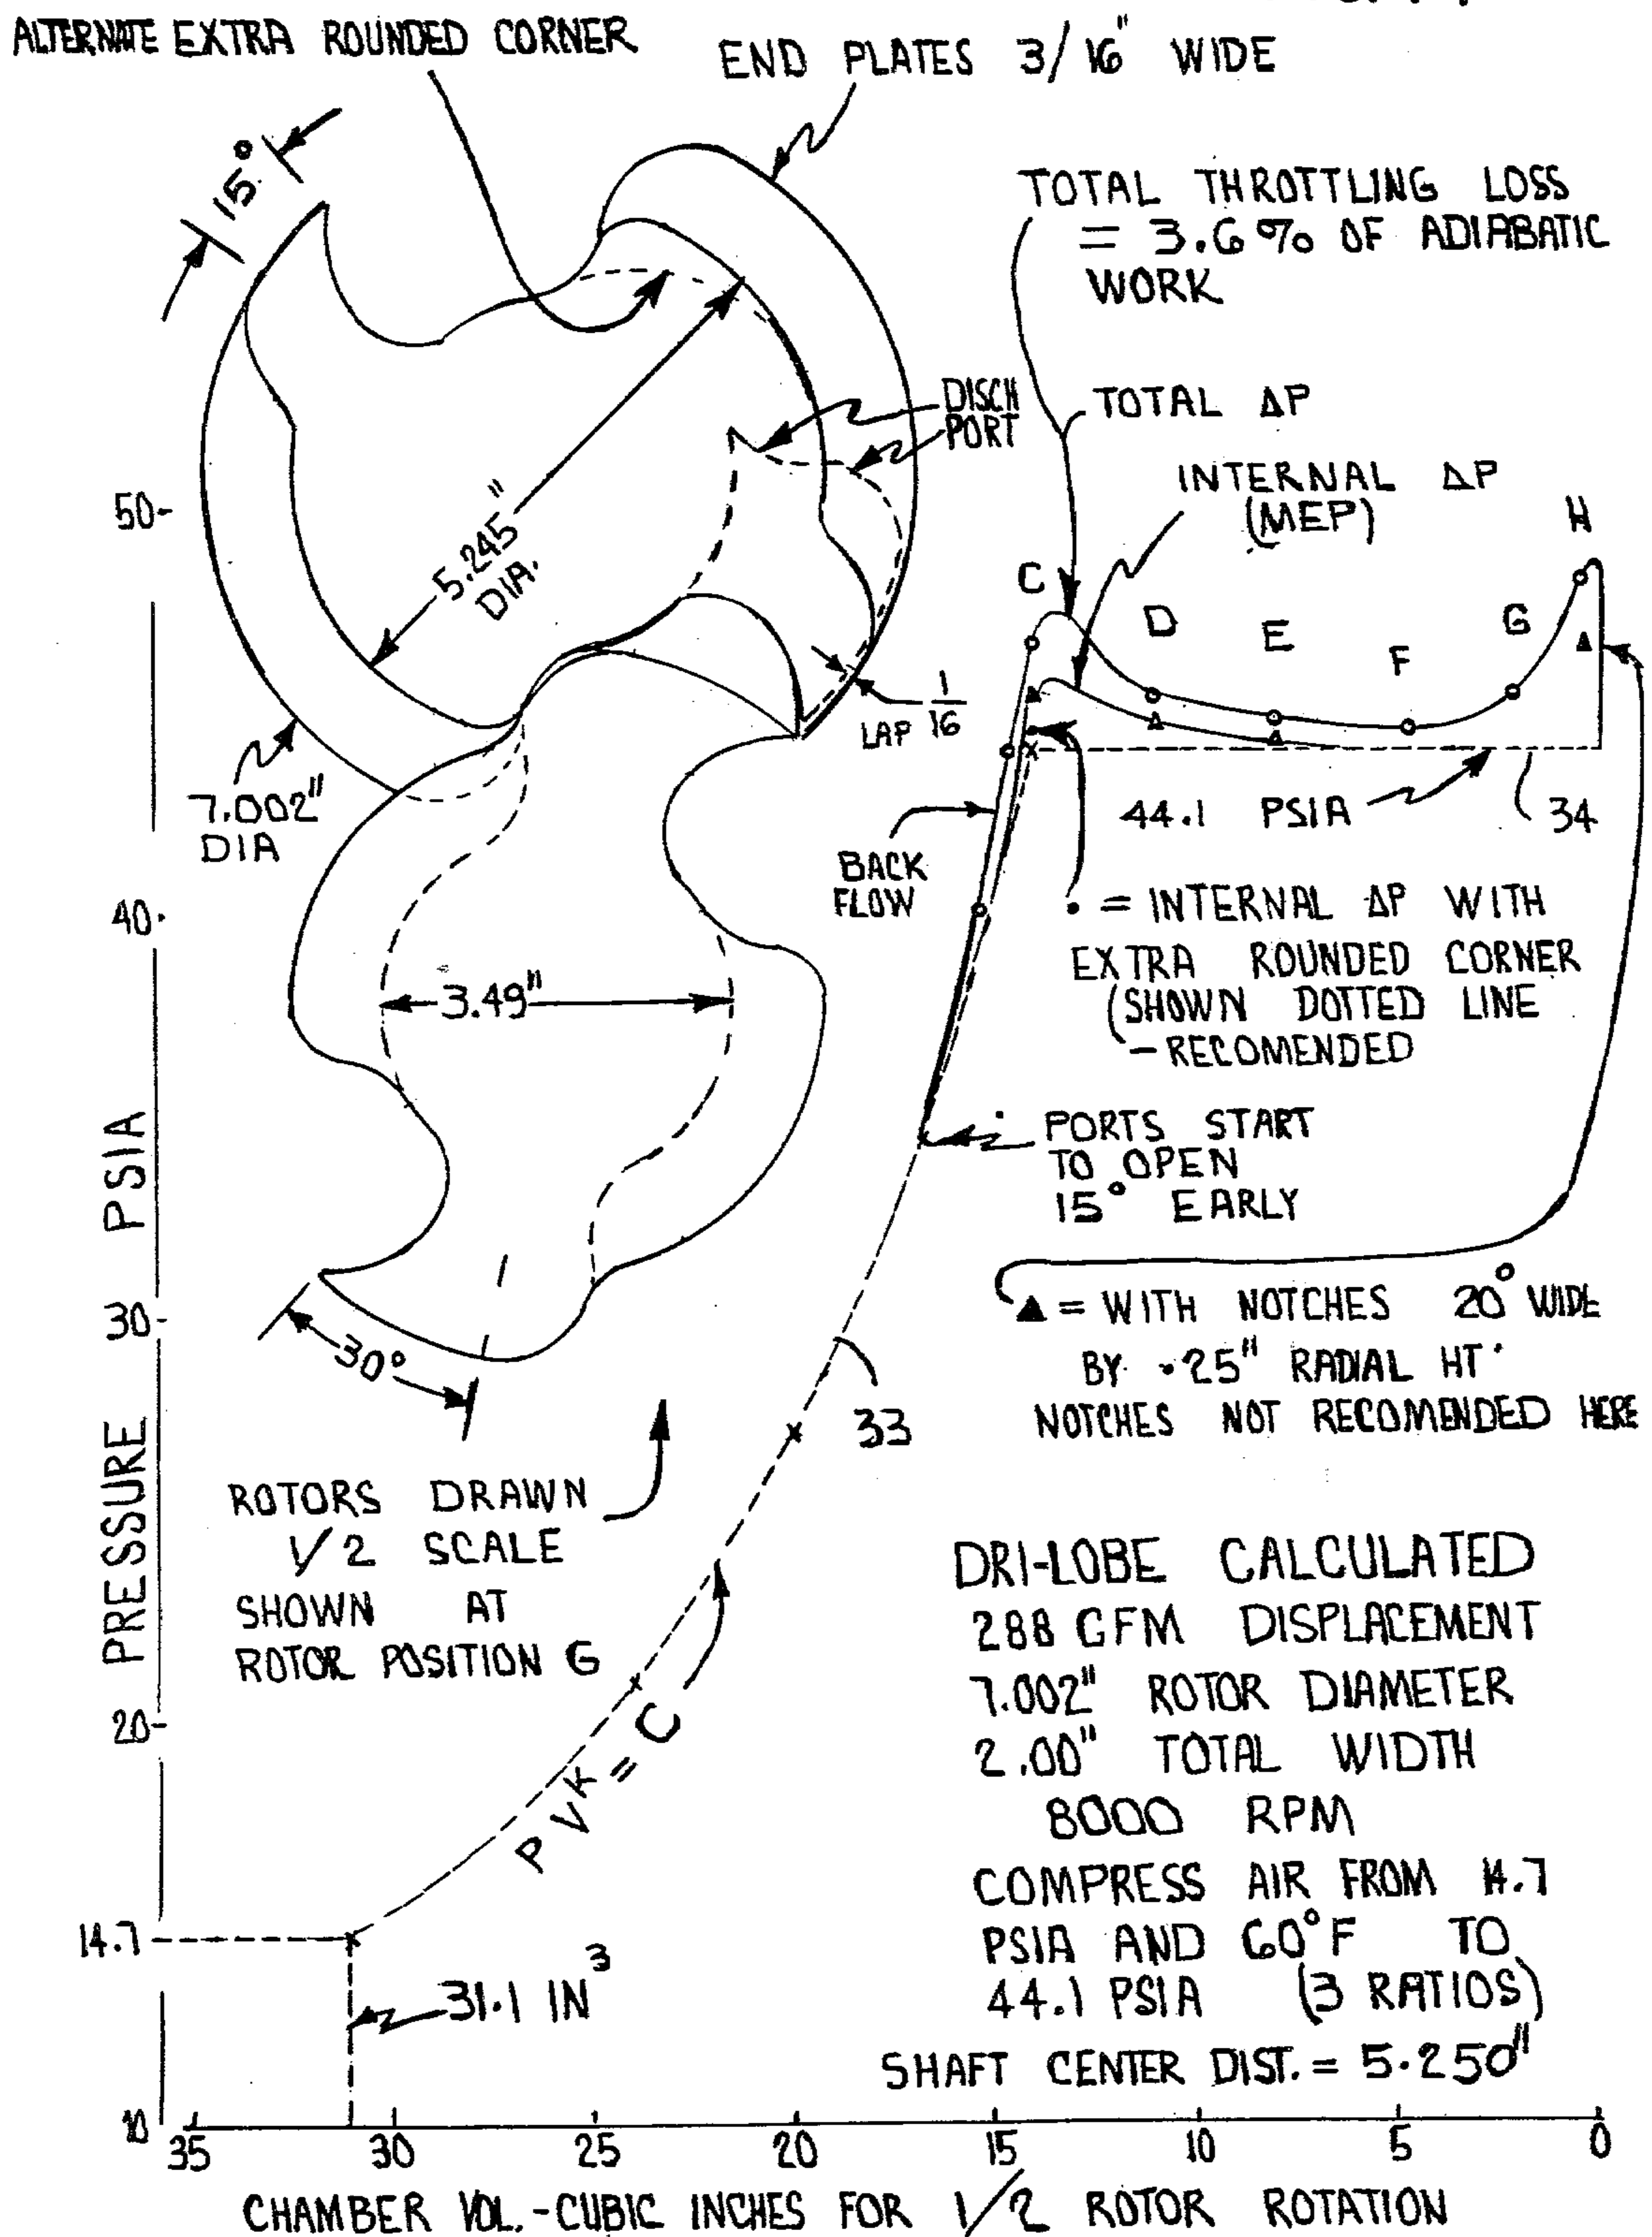 ALTERNATE EXTRA ROUNDED CORNER
END PLATES 3/16" WIDE
15°
TOTAL THROTTLING LOSS
= 3.6% OF ADIABATIC
WORK
DISCH
PORT
TOTAL ΔP
INTERNAL ΔP
(MEP)
5.245"
DIA.
50-
C
D
E
F
G
H
LAP 1/16
7.002"
DIA
44.1 PSIA
34
BACK
FLOW
40-
• = INTERNAL ΔP WITH
EXTRA ROUNDED CORNER
(SHOWN DOTTED LINE
- RECOMENDED
3.49"
PORTS START
TO OPEN
15° EARLY
30-
▲ = WITH NOTCHES 20° WIDE
BY .25" RADIAL HT.
NOTCHES NOT RECOMENDED HERE
30°
33
PRESSURE PSIA
ROTORS DRAWN
1/2 SCALE
SHOWN AT
ROTOR POSITION G
DRI-LOBE CALCULATED
288 CFM DISPLACEMENT
7.002" ROTOR DIAMETER
2.00" TOTAL WIDTH
8000 RPM
COMPRESS AIR FROM 14.7
PSIA AND 60°F TO
44.1 PSIA (3 RATIOS)
SHAFT CENTER DIST. = 5.250"
20-
P V^K = C
14.7
31.1 IN³
10
35 30 25 20 15 10 5 0
CHAMBER VOL.-CUBIC INCHES FOR 1/2 ROTOR ROTATION